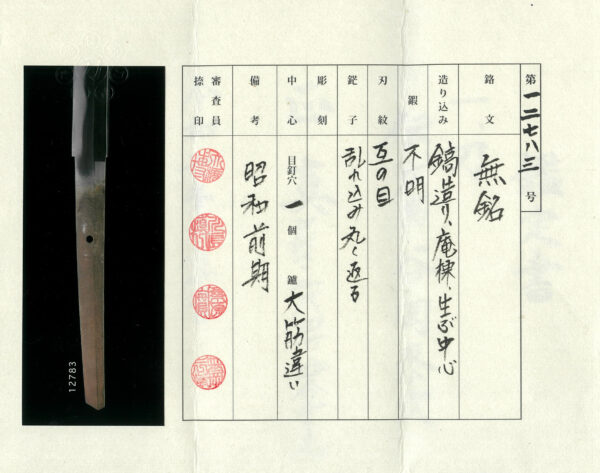 第一二七八三号
銘文 無銘
造り込み 鎬造り、庵棟、生ぶ中心
鍜 不明
刃紋 互の目
鋩子 乱れ込み丸く返る
彫刻
中心 目釘穴 一個 鑢 大筋違い
備考 昭和前期
審査員捺印
12783